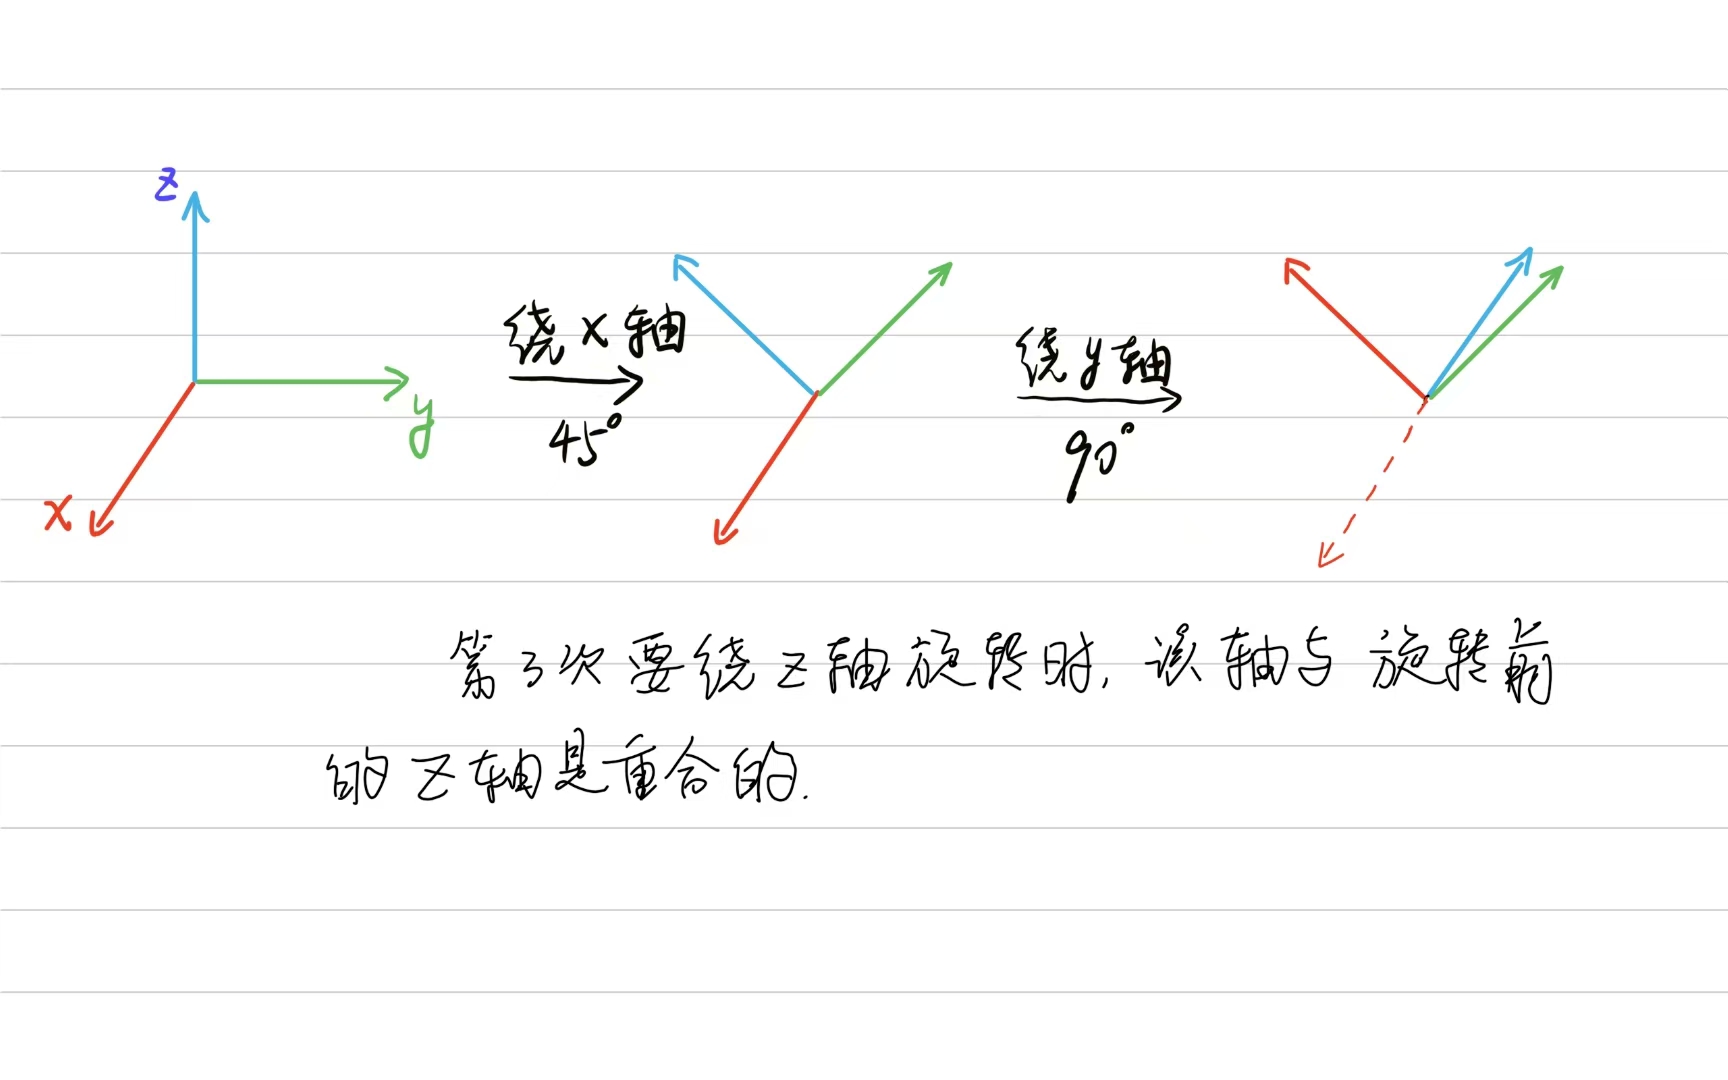 z
绕x轴
45°
绕y轴
90°
y
x
第3次要绕z轴旋转时，该轴与旋转前
的z轴是重合的.